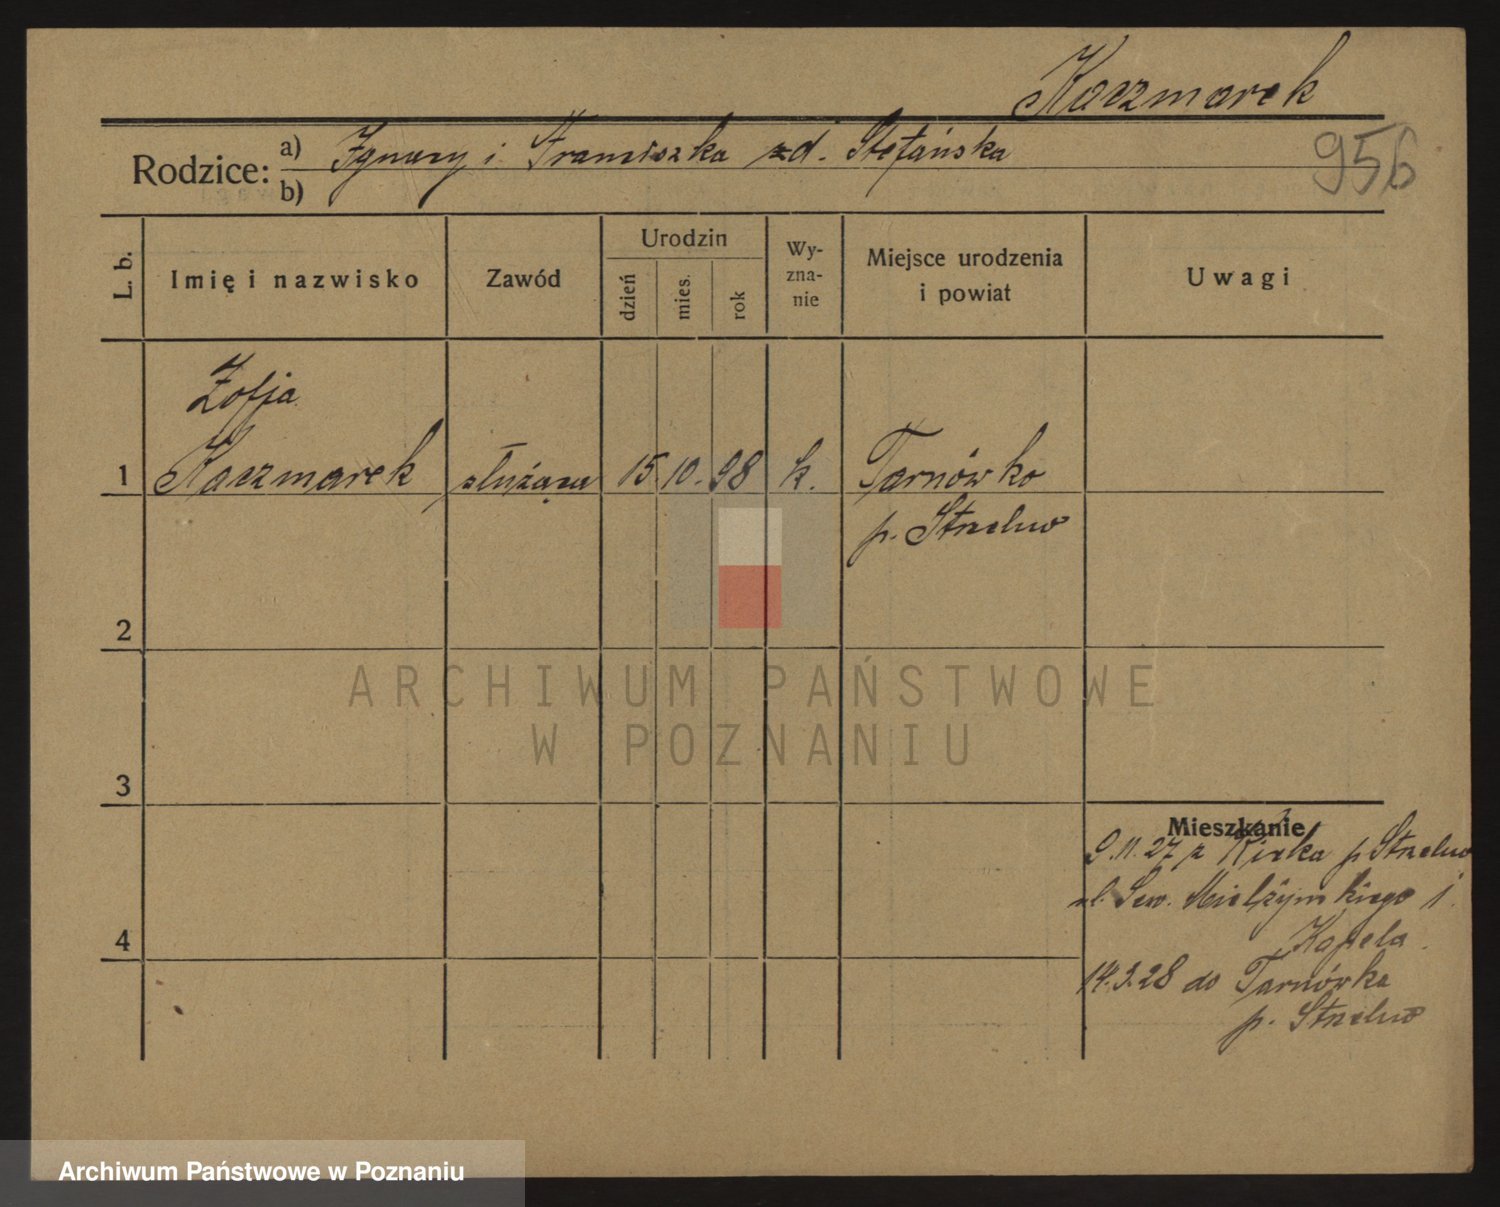 Kaczmarek
956
Rodzice: a) Ignacy i Franciszka zd. Stefańska
b)
L. b.
Imię i nazwisko
Zawód
Urodzin
dzień
mies.
rok
Wy-
zna-
nie
Miejsce urodzenia
i powiat
Uwagi
Zofja
1 Kaczmarek służąca 15. 10. 98 k. Tarnówko
p. Strzelno
2
3
4
Mieszkanie
9.11.27 z p. Strzelno
ul. Sew. Mielżyńskiego 1.
Kapela
14.3.28 do Tarnówka
p. Strzelno
ARCHIWUM PAŃSTWOWE
W POZNANIU
Archiwum Państwowe w Poznaniu